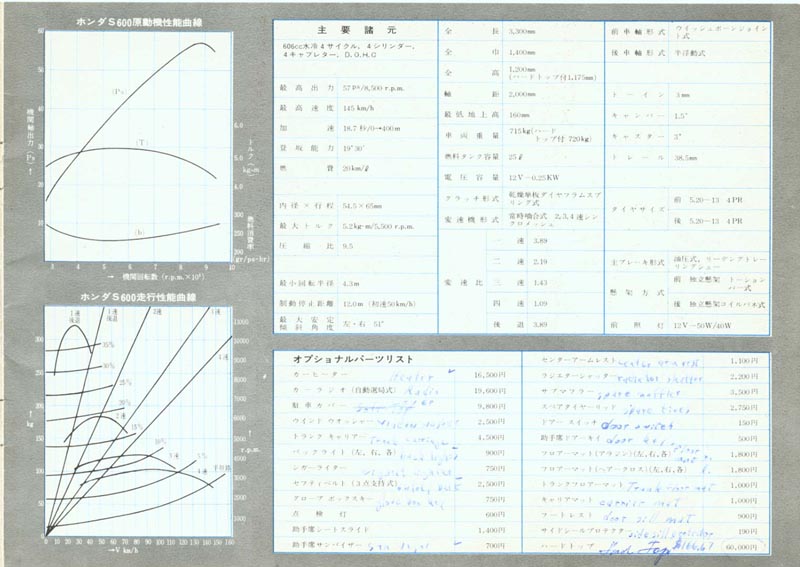 ホンダS600原動機性能曲線
60
50
40
30
20
10
(Ps)
(T)
(b)
機関軸出力(Ps)↑
6.0
5.0
4.0
トルク↑
kg-m
300
250
200
燃料消費率
gr/ps-hr
3 4 5 6 7 8 9 10
→ 機関回転数 (r.p.m.×10³)
ホンダS600走行性能曲線
1速 後退
2速
3速
4速
35%
30%
25%
20%
15%
10%
5%
平坦路
300
200
100
kg
11000
10000
9000
8000
7000
6000
5000
4000
3000
2000
1000
r.p.m.
0 10 20 30 40 50 60 70 80 90 100 110 120 130 140 150 160
→V km/h
主要諸元
606cc水冷4サイクル, 4シリンダー,
4キャブレター, D.O.H.C
最高出力 57ps/8,500r.p.m.
最高速度 145km/h
加速 18.7秒/0→400m
登坂能力 19°30′
燃費 20km/ℓ
内径×行程 54.5×65mm
最大トルク 5.2kg-m/5,500r.p.m.
圧縮比 9.5
最小回転半径 4.3m
制動停止距離 12.0m (初速50km/h)
最大安定傾斜角度 左・右 51°
全長 3,300mm
全巾 1,400mm
全高 1,200mm
(ハードトップ付1,175mm)
軸距 2,000mm
最低地上高 160mm
車両重量 715kg(ハード
トップ付 720kg)
燃料タンク容量 25ℓ
電圧容量 12V-0.25KW
クラッチ形式 乾燥単板ダイヤフラムスプ
リング式
変速機形式 常時噛合式 2,3,4速シン
クロメッシュ
変速比
一速 3.89
二速 2.19
三速 1.43
四速 1.09
後退 3.89
前車軸形式 ウイッシュボーンジョイン
ト式
後車軸形式 半浮動式
トーイン 3mm
キャンバー 1.5°
キャスター 3°
トレール 38.5mm
タイヤサイズ
前 5.20-13 4PR
後 5.20-13 4PR
主ブレーキ形式 油圧式, リーデングトレー
リングシュー
懸架方式
前 独立懸架 トーション
バー式
後 独立懸架コイルバネ式
前照灯 12V-50W/40W
オプショナルパーツリスト
カーヒーター heater 16,500円
カーラジオ(自動選局式) Radio 19,600円
駐車カバー 9,800円
ウインドウオッシャー 2,500円
トランクキャリアー 4,500円
バックライト(左,右,各) 900円
シガーライター 750円
セフティベルト(3点支持式) 2,500円
グローブボックスキー 750円
点検灯 600円
助手席シートスライド 1,400円
助手席サンバイザー 700円
センターアームレスト 1,100円
ラジエターシャッター 2,200円
サブマフラー 3,500円
スペアタイヤーリッド 2,750円
ドアースイッチ 150円
助手席ドアーキイ door key 500円
フロアーマット(アラジン)(左,右,各) 1,800円
フロアーマット(ヘアークロス)(左,右,各) 1,800円
トランクフロアーマット 1,000円
キャリアマット carrier mat 1,000円
フートレスト door sill mat 900円
サイドシールプロテクター 190円
ハードトップ Hard Top $166.67 60,000円